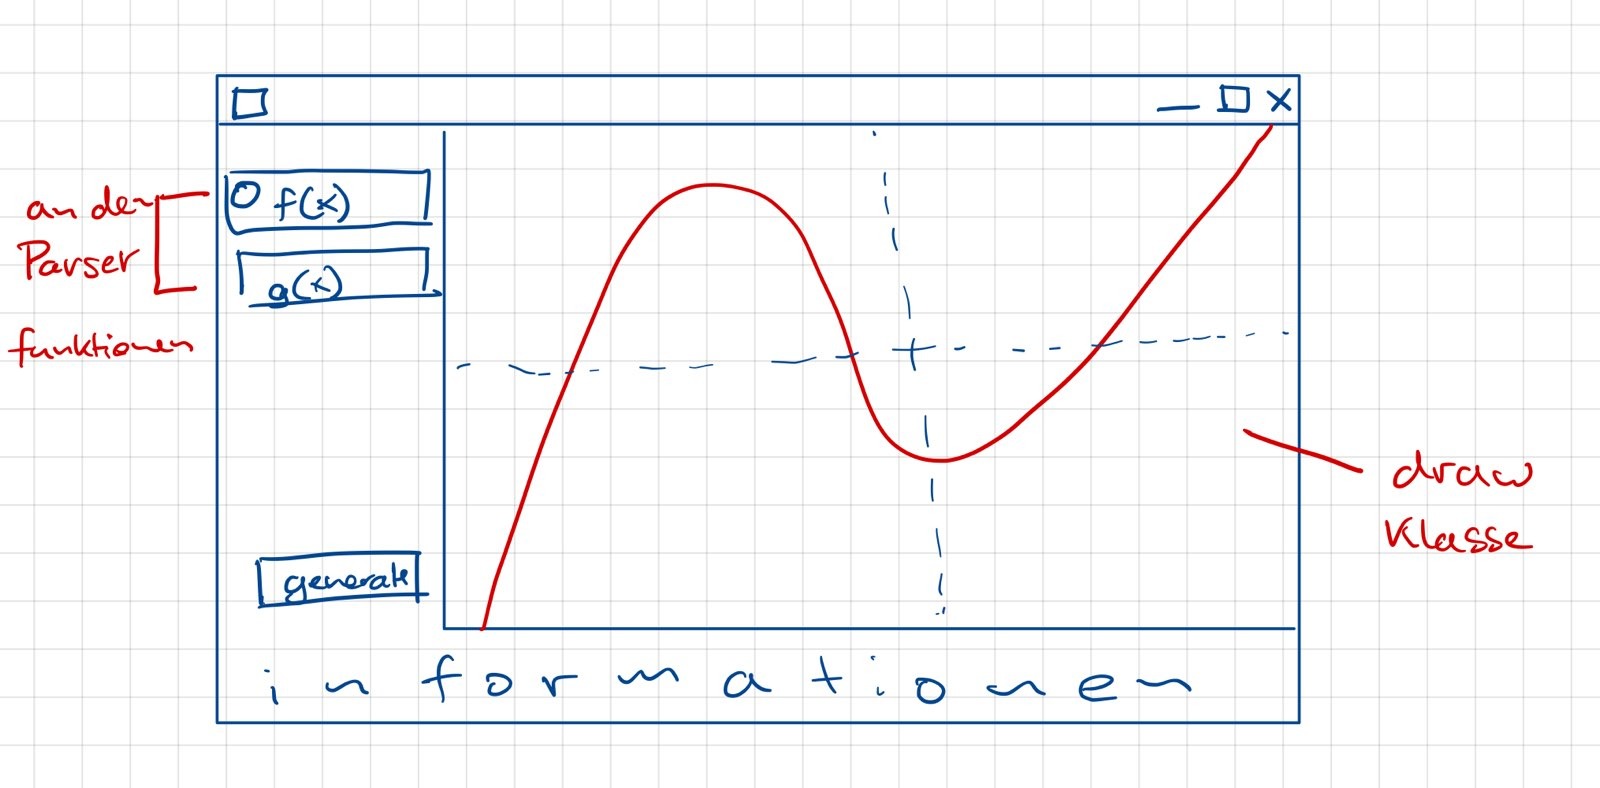 an den
Parser
funktionen
f(x)
g(x)
generate
draw
Klasse
informationen